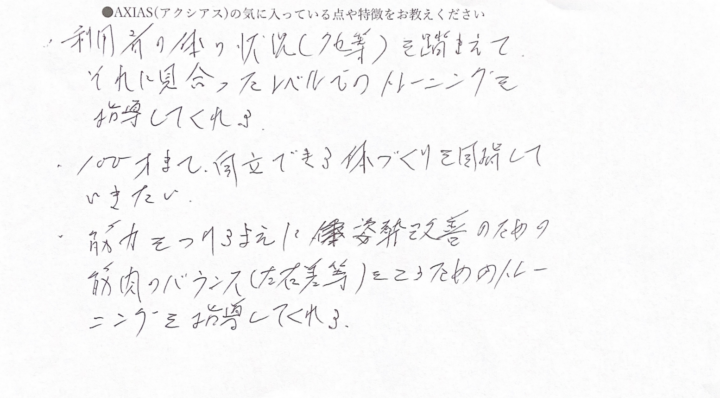 ●AXIAS(アクシアス)の気に入っている点や特徴をお教えください
・利用者の体の状況(クセ等)を踏まえて
それに見合ったレベルでのトレーニングを
指導してくれる.
・100才まで、自立できる体づくりを目指して
いきたい.
・筋力をつけるまえに 姿勢改善のための
筋肉のバランス(左右差等)をとるためのトレー
ニングを指導してくれる.